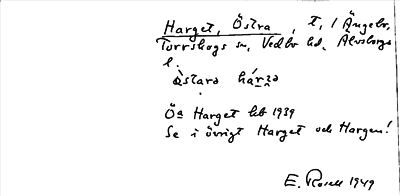 Harget, Östra, t, / Ängebr,
Torrskogs sn, Vedbo hd, Älvsborgs
l.
östara hárʒə
Öa Harget hlt 1939
Se i övrigt Harget och Hargen!
E. Rosell 1949